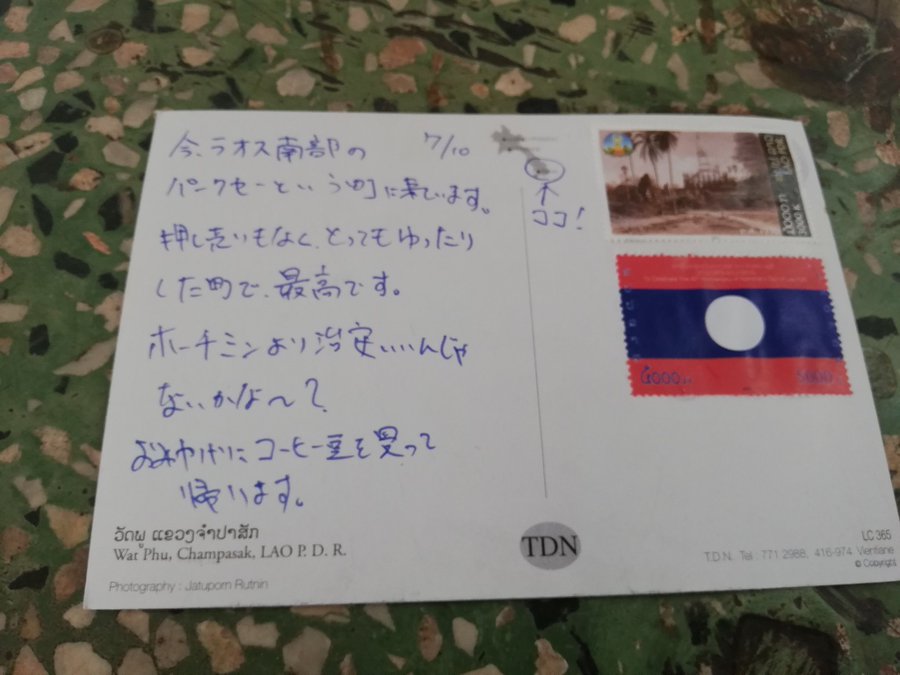 今、ラオス南部の 7/10
パークセーという町に来ています。
押し売りもなく、とってもゆったり
した町で、最高です。
ホーチミンより治安いいんじゃ
ないかな〜?
おみやげにコーヒー豆を買って
帰ります。
↑
ココ!
5000
ວັດພູ ແຂວງຈຳປາສັກ
Wat Phu, Champasak, LAO P. D. R.
Photography : Jatuporn Rutnin
TDN
LC 365
T.D.N. Tel : 771 2988, 416-974 Vientiane
© Copyright